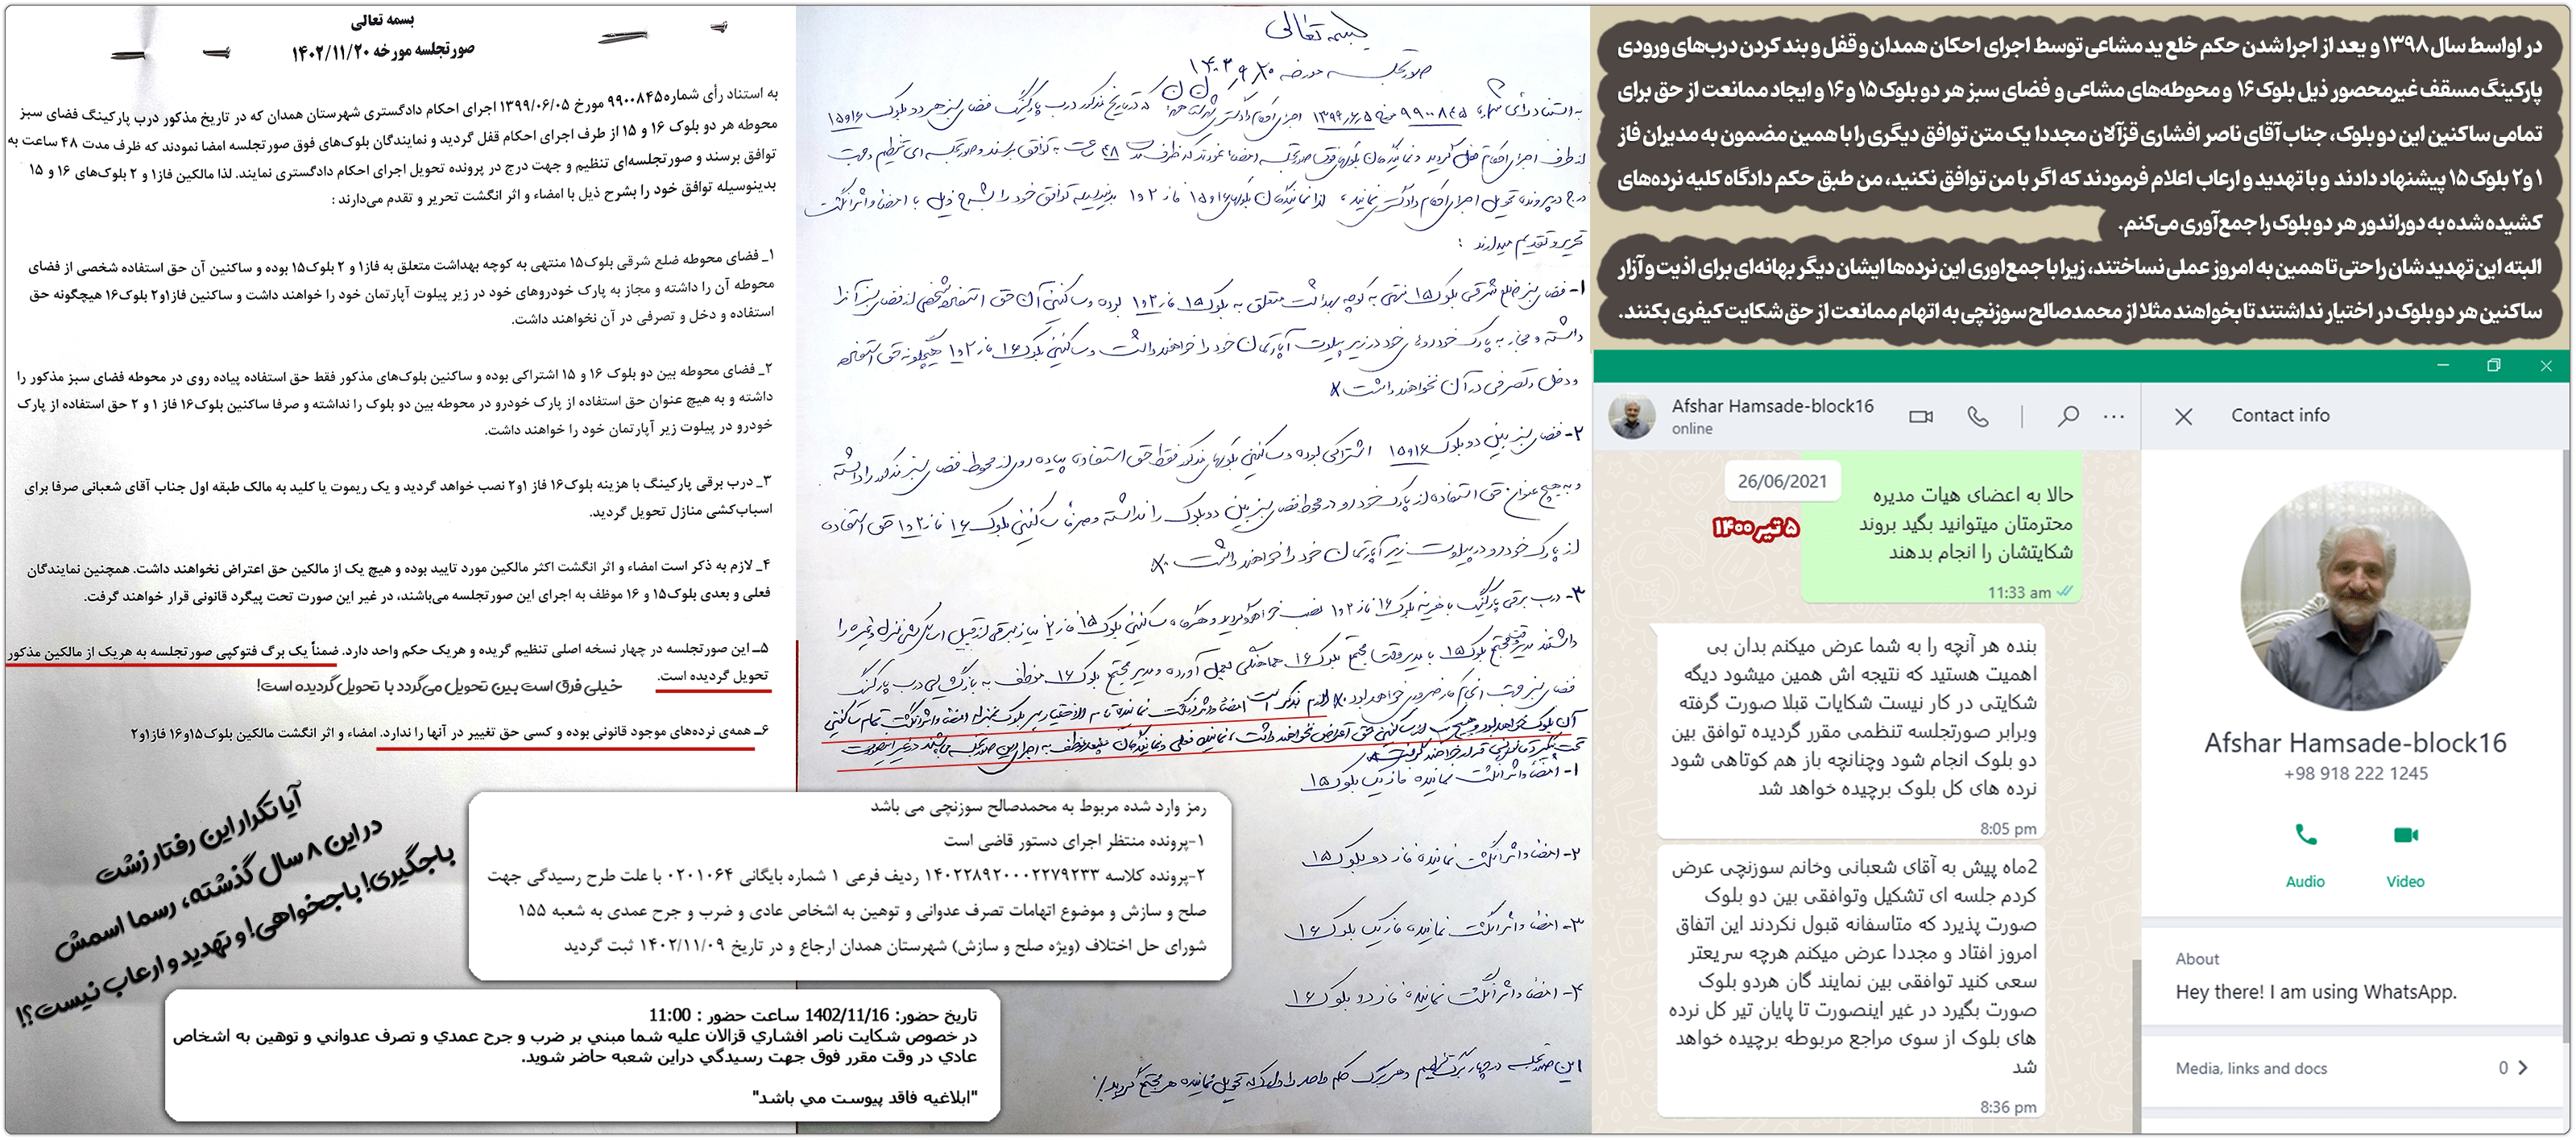 در اواسط سال ۱۳۹۸ و بعد از اجرا شدن حکم خلع ید مشاعی توسط اجرای احکان همدان و قفل و بند کردن درب‌های ورودی
پارکینگ مسقف غیرمحصور ذیل بلوک ۱۶ و محوطه‌های مشاعی و فضای سبز هر دو بلوک ۱۵ و ۱۶ و ایجاد ممانعت از حق برای
تمامی ساکنین این دو بلوک، جناب آقای ناصر افشاری قزآلان مجددا یک متن توافق دیگری را با همین مضمون به مدیران فاز
۱ و۲ بلوک ۱۵ پیشنهاد دادند و با تهدید و ارعاب اعلام فرمودند که اگر با من توافق نکنید، من طبق حکم دادگاه کلیه نرده‌های
کشیده شده به دوراندور هر دو بلوک را جمع‌آوری می‌کنم.
البته این تهدیدشان را حتی تا همین به امروز عملی نساختند، زیرا با جمع‌اوری این نرده‌ها ایشان دیگر بهانه‌ای برای اذیت و آزار
ساکنین هر دو بلوک در اختیار نداشتند تا بخواهند مثلا از محمدصالح سوزنچی به اتهام ممانعت از حق شکایت کیفری بکنند.
Afshar Hamsade-block16
online
Contact info
26/06/2021
۵ تیر ۱۴۰۰
حالا به اعضای هیات مدیره
محترمتان میتوانید بگید بروند
شکایتشان را انجام بدهند
11:33 am
بنده هر آنچه را به شما عرض میکنم بدان بی
اهمیت هستید که نتیجه اش همین میشود دیگه
شکایتی در کار نیست شکایات قبلا صورت گرفته
وبرابر صورتجلسه تنظمی مقرر گردیده توافق بین
دو بلوک انجام شود وچنانچه باز هم کوتاهی شود
نرده های کل بلوک برچیده خواهد شد
8:05 pm
2ماه پیش به آقای شعبانی وخانم سوزنچی عرض
کردم جلسه ای تشکیل وتوافقی بین دو بلوک
صورت پذیرد که متاسفانه قبول نکردند این اتفاق
امروز افتاد و مجددا عرض میکنم هرچه سریعتر
سعی کنید توافقی بین نمایند گان هردو بلوک
صورت بگیرد در غیر اینصورت تا پایان تیر کل نرده
های بلوک از سوی مراجع مربوطه برچیده خواهد
شد
8:36 pm
Afshar Hamsade-block16
+98 918 222 1245
Audio
Video
About
Hey there! I am using WhatsApp.
Media, links and docs
0
بسمه تعالی
صورتجلسه مورخه
به استناد رأی شماره ۹۹۰۰۸۴۵ مورخ ۱۳۹۹/۶/۵ اجرای احکام دادگستری که در تاریخ مذکور درب پارکینگ فضای سبز هر دو بلوک ۱۶و۱۵
از طرف اجرای احکام قفل گردید و نمایندگان بلوکهای فوق صورتجلسه امضا نمودند که ظرف مدت ۴۸ ساعت به توافق برسند و صورتجلسه ای تنظیم و جهت
درج در پرونده تحویل اجرای احکام دادگستری نمایند، لذا نمایندگان بلوکهای ۱۶و۱۵ فاز ۲و۱ بدینوسیله توافق خود را بشرح ذیل با امضا و اثر انگشت
تحریر و تقدیم میدارند :
۱- فضای سبز ضلع شرقی بلوک ۱۵ منتهی به کوچه بهداشت متعلق به بلوک ۱۵ فاز ۲و۱ بوده و ساکنین آن حق استفاده شخصی از فضای سبز آنرا
داشته و مجاز به پارک خودروهای خود در زیر پیلوت آپارتمان خود را خواهند داشت و ساکنین بلوک ۱۶ فاز ۲و۱ هیچگونه حق استفاده
و دخل و تصرفی در آن نخواهند داشت
۲- فضای سبز بین دو بلوک ۱۶و۱۵ اشتراکی بوده و ساکنین بلوکهای مذکور فقط حق استفاده پیاده روی از محوطه فضای سبز مذکور را داشته
و به هیچ عنوان حق استفاده از پارک خودرو در محوطه فضای سبز بین دو بلوک را نداشته و صرفا ساکنین بلوک ۱۶ فاز ۲و۱ حق استفاده
از پارک خودرو در پیلوت زیر آپارتمان خود را خواهند داشت
۳- درب برقی پارکینگ با هزینه بلوک ۱۶ فاز ۲و۱ نصب خواهد گردید و هرگاه ساکنین بلوک ۱۵ فاز ۲ نیاز مبرمی از قبیل اسباب کشی منزل و غیره را
داشتند مدیر وقت مجتمع بلوک ۱۵ با مدیر وقت مجتمع بلوک ۱۶ هماهنگی بعمل آورده و مدیر مجتمع بلوک ۱۶ موظف به بازگشایی درب پارکینگ
فضای سبز جهت انجام کار ضروری خواهد بود لازم بذکر است امضا و اثر انگشت نماینده تام الاختیار هر بلوک بمنزله امضا و اثر انگشت تمام ساکنین
آن بلوک خواهد بود و هیچ یک از ساکنین حق اعتراض نخواهند داشت، نماینده فعلی و نمایندگان بعدی موظف به اجرای این صورتجلسه می باشند در غیر اینصورت
تحت پیگرد قانونی قرار خواهند گرفت
۱- امضا و اثر انگشت نماینده فاز یک بلوک ۱۵
۲- امضا و اثر انگشت نماینده فاز دو بلوک ۱۵
۳- امضا و اثر انگشت نماینده فاز یک بلوک ۱۶
۴- امضا و اثر انگشت نماینده فاز دو بلوک ۱۶
این صورتجلسه در چهار برگ تنظیم و هر برگ حکم واحد را دارد که تحویل نماینده هر مجتمع گردید
بسمه تعالی
صورتجلسه مورخه ۱۴۰۲/۱۱/۲۰
به استناد رأی شماره ۹۹۰۰۸۴۵ مورخ ۱۳۹۹/۰۶/۰۵ اجرای احکام دادگستری شهرستان همدان که در تاریخ مذکور درب پارکینگ فضای سبز
محوطه هر دو بلوک ۱۶ و ۱۵ از طرف اجرای احکام قفل گردید و نمایندگان بلوک‌های فوق صورتجلسه امضا نمودند که ظرف مدت ۴۸ ساعت به
توافق برسند و صورتجلسه‌ای تنظیم و جهت درج در پرونده تحویل اجرای احکام دادگستری نمایند. لذا مالکین فاز۱ و ۲ بلوک‌های ۱۶ و ۱۵
بدینوسیله توافق خود را بشرح ذیل با امضاء و اثر انگشت تحریر و تقدم می‌دارند :
۱_ فضای محوطه ضلع شرقی بلوک۱۵ منتهی به کوچه بهداشت متعلق به فاز۱ و ۲ بلوک۱۵ بوده و ساکنین آن حق استفاده شخصی از فضای
محوطه آن را داشته و مجاز به پارک خودروهای خود در زیر پیلوت آپارتمان خود را خواهند داشت و ساکنین فاز۱و۲ بلوک۱۶ هیچگونه حق
استفاده و دخل و تصرفی در آن نخواهند داشت.
۲_ فضای محوطه بین دو بلوک ۱۶ و ۱۵ اشتراکی بوده و ساکنین بلوک‌های مذکور فقط حق استفاده پیاده روی در محوطه فضای سبز مذکور را
داشته و به هیچ عنوان حق استفاده از پارک خودرو در محوطه بین دو بلوک را نداشته و صرفا ساکنین بلوک۱۶ فاز ۱ و ۲ حق استفاده از پارک
خودرو در پیلوت زیر آپارتمان خود را خواهند داشت.
۳_ درب برقی پارکینگ با هزینه بلوک۱۶ فاز ۱و۲ نصب خواهد گردید و یک ریموت یا کلید به مالک طبقه اول جناب آقای شعبانی صرفا برای
اسباب‌کشی منازل تحویل گردید.
۴_ لازم به ذکر است امضاء و اثر انگشت اکثر مالکین مورد تایید بوده و هیچ یک از مالکین حق اعتراض نخواهند داشت. همچنین نمایندگان
فعلی و بعدی بلوک۱۵ و ۱۶ موظف به اجرای این صورتجلسه می‌باشند، در غیر این صورت تحت پیگرد قانونی قرار خواهند گرفت.
۵_ این صورتجلسه در چهار نسخه اصلی تنظیم گریده و هریک حکم واحد دارد. ضمنأ یک برگ فتوکپی صورتجلسه به هریک از مالکین مذکور
تحویل گردیده است.
خیلی فرق است بین تحویل می‌گردد با تحویل گردیده است!
۶_ همه‌ی نرده‌های موجود قانونی بوده و کسی حق تغییر در آنها را ندارد. امضاء و اثر انگشت مالکین بلوک۱۵و۱۶ فاز۱و۲
آیا تکرار این رفتار زشت
در این ۸ سال گذشته، رسما اسمش
باجگیری! باجخواهی! و تهدید و ارعاب نیست؟!
رمز وارد شده مربوط به محمدصالح سوزنچی می باشد
۱-پرونده منتظر اجرای دستور قاضی است
۲-پرونده کلاسه ۱۴۰۲۲۸۹۲۰۰۰۲۲۷۹۲۳۳ ردیف فرعی ۱ شماره بایگانی ۰۲۰۱۰۶۴ با علت طرح رسیدگی جهت
صلح و سازش و موضوع اتهامات تصرف عدوانی و توهین به اشخاص عادی و ضرب و جرح عمدی به شعبه ۱۵۵
شورای حل اختلاف (ویژه صلح و سازش) شهرستان همدان ارجاع و در تاریخ ۱۴۰۲/۱۱/۰۹ ثبت گردید
تاریخ حضور: 1402/11/16 ساعت حضور : 11:00
در خصوص شکایت ناصر افشاري قزالان علیه شما مبني بر ضرب و جرح عمدي و تصرف عدواني و توهین به اشخاص
عادي در وقت مقرر فوق جهت رسیدگي دراین شعبه حاضر شوید.
"ابلاغیه فاقد پیوست مي باشد"